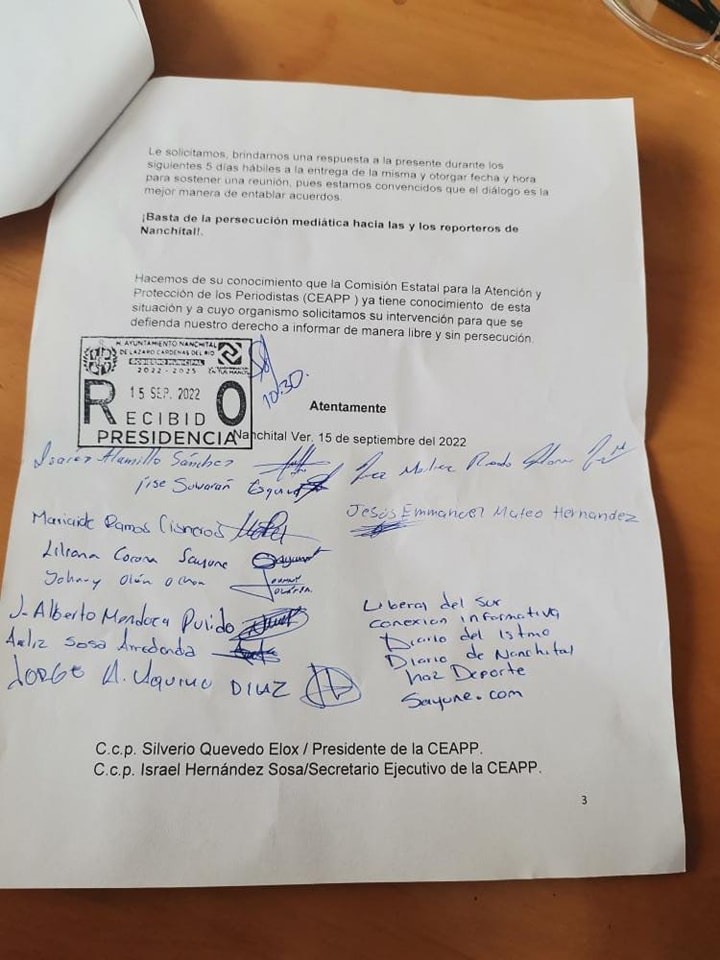 Le solicitamos, brindarnos una respuesta a la presente durante los
siguientes 5 días hábiles a la entrega de la misma y otorgar fecha y hora
para sostener una reunión, pues estamos convencidos que el diálogo es la
mejor manera de entablar acuerdos.
¡Basta de la persecución mediática hacia las y los reporteros de
Nanchital!.
Hacemos de su conocimiento que la Comisión Estatal para la Atención y
Protección de los Periodistas (CEAPP ) ya tiene conocimiento de esta
situación y a cuyo organismo solicitamos su intervención para que se
defienda nuestro derecho a informar de manera libre y sin persecución.
H. AYUNTAMIENTO NANCHITAL
DE LÁZARO CÁRDENAS DEL RÍO
GOBIERNO MUNICIPAL
2022 - 2025
15 SEP. 2022
RECIBIDO
PRESIDENCIA
10:30.
Atentamente
Nanchital Ver. 15 de septiembre del 2022
Alamillo Sánchez
Jesús Emmanuel Mateo Hernandez
Ramos Cisneros
Liliana Corona Sayune
Johnny Olán Ochoa
J. Alberto Mendoza Pulido
Sosa Arredonda
JORGE A. Aquino DIAZ
Liberal del Sur
conexion informativa
Diario del Istmo
Diario de Nanchital
haz Deporte
Sayune.com
C.c.p. Silverio Quevedo Elox / Presidente de la CEAPP.
C.c.p. Israel Hernández Sosa/Secretario Ejecutivo de la CEAPP.
3